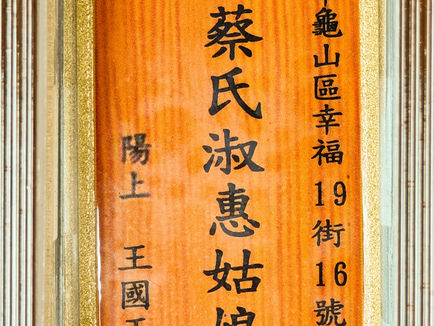 龜山區幸福19街16號
蔡氏淑惠姑娘
陽上 王國